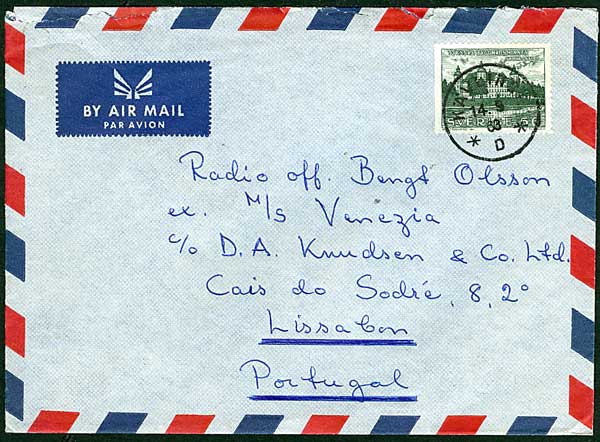 BY AIR MAIL
PAR AVION
SVERIGE
14. 9
D
Radio off. Bengt Olsson
ex. M/s Venezia
c/o D. A. Knudsen & Co. Ltd.
Cais do Sodré, 8, 2º
Lissabon
Portugal